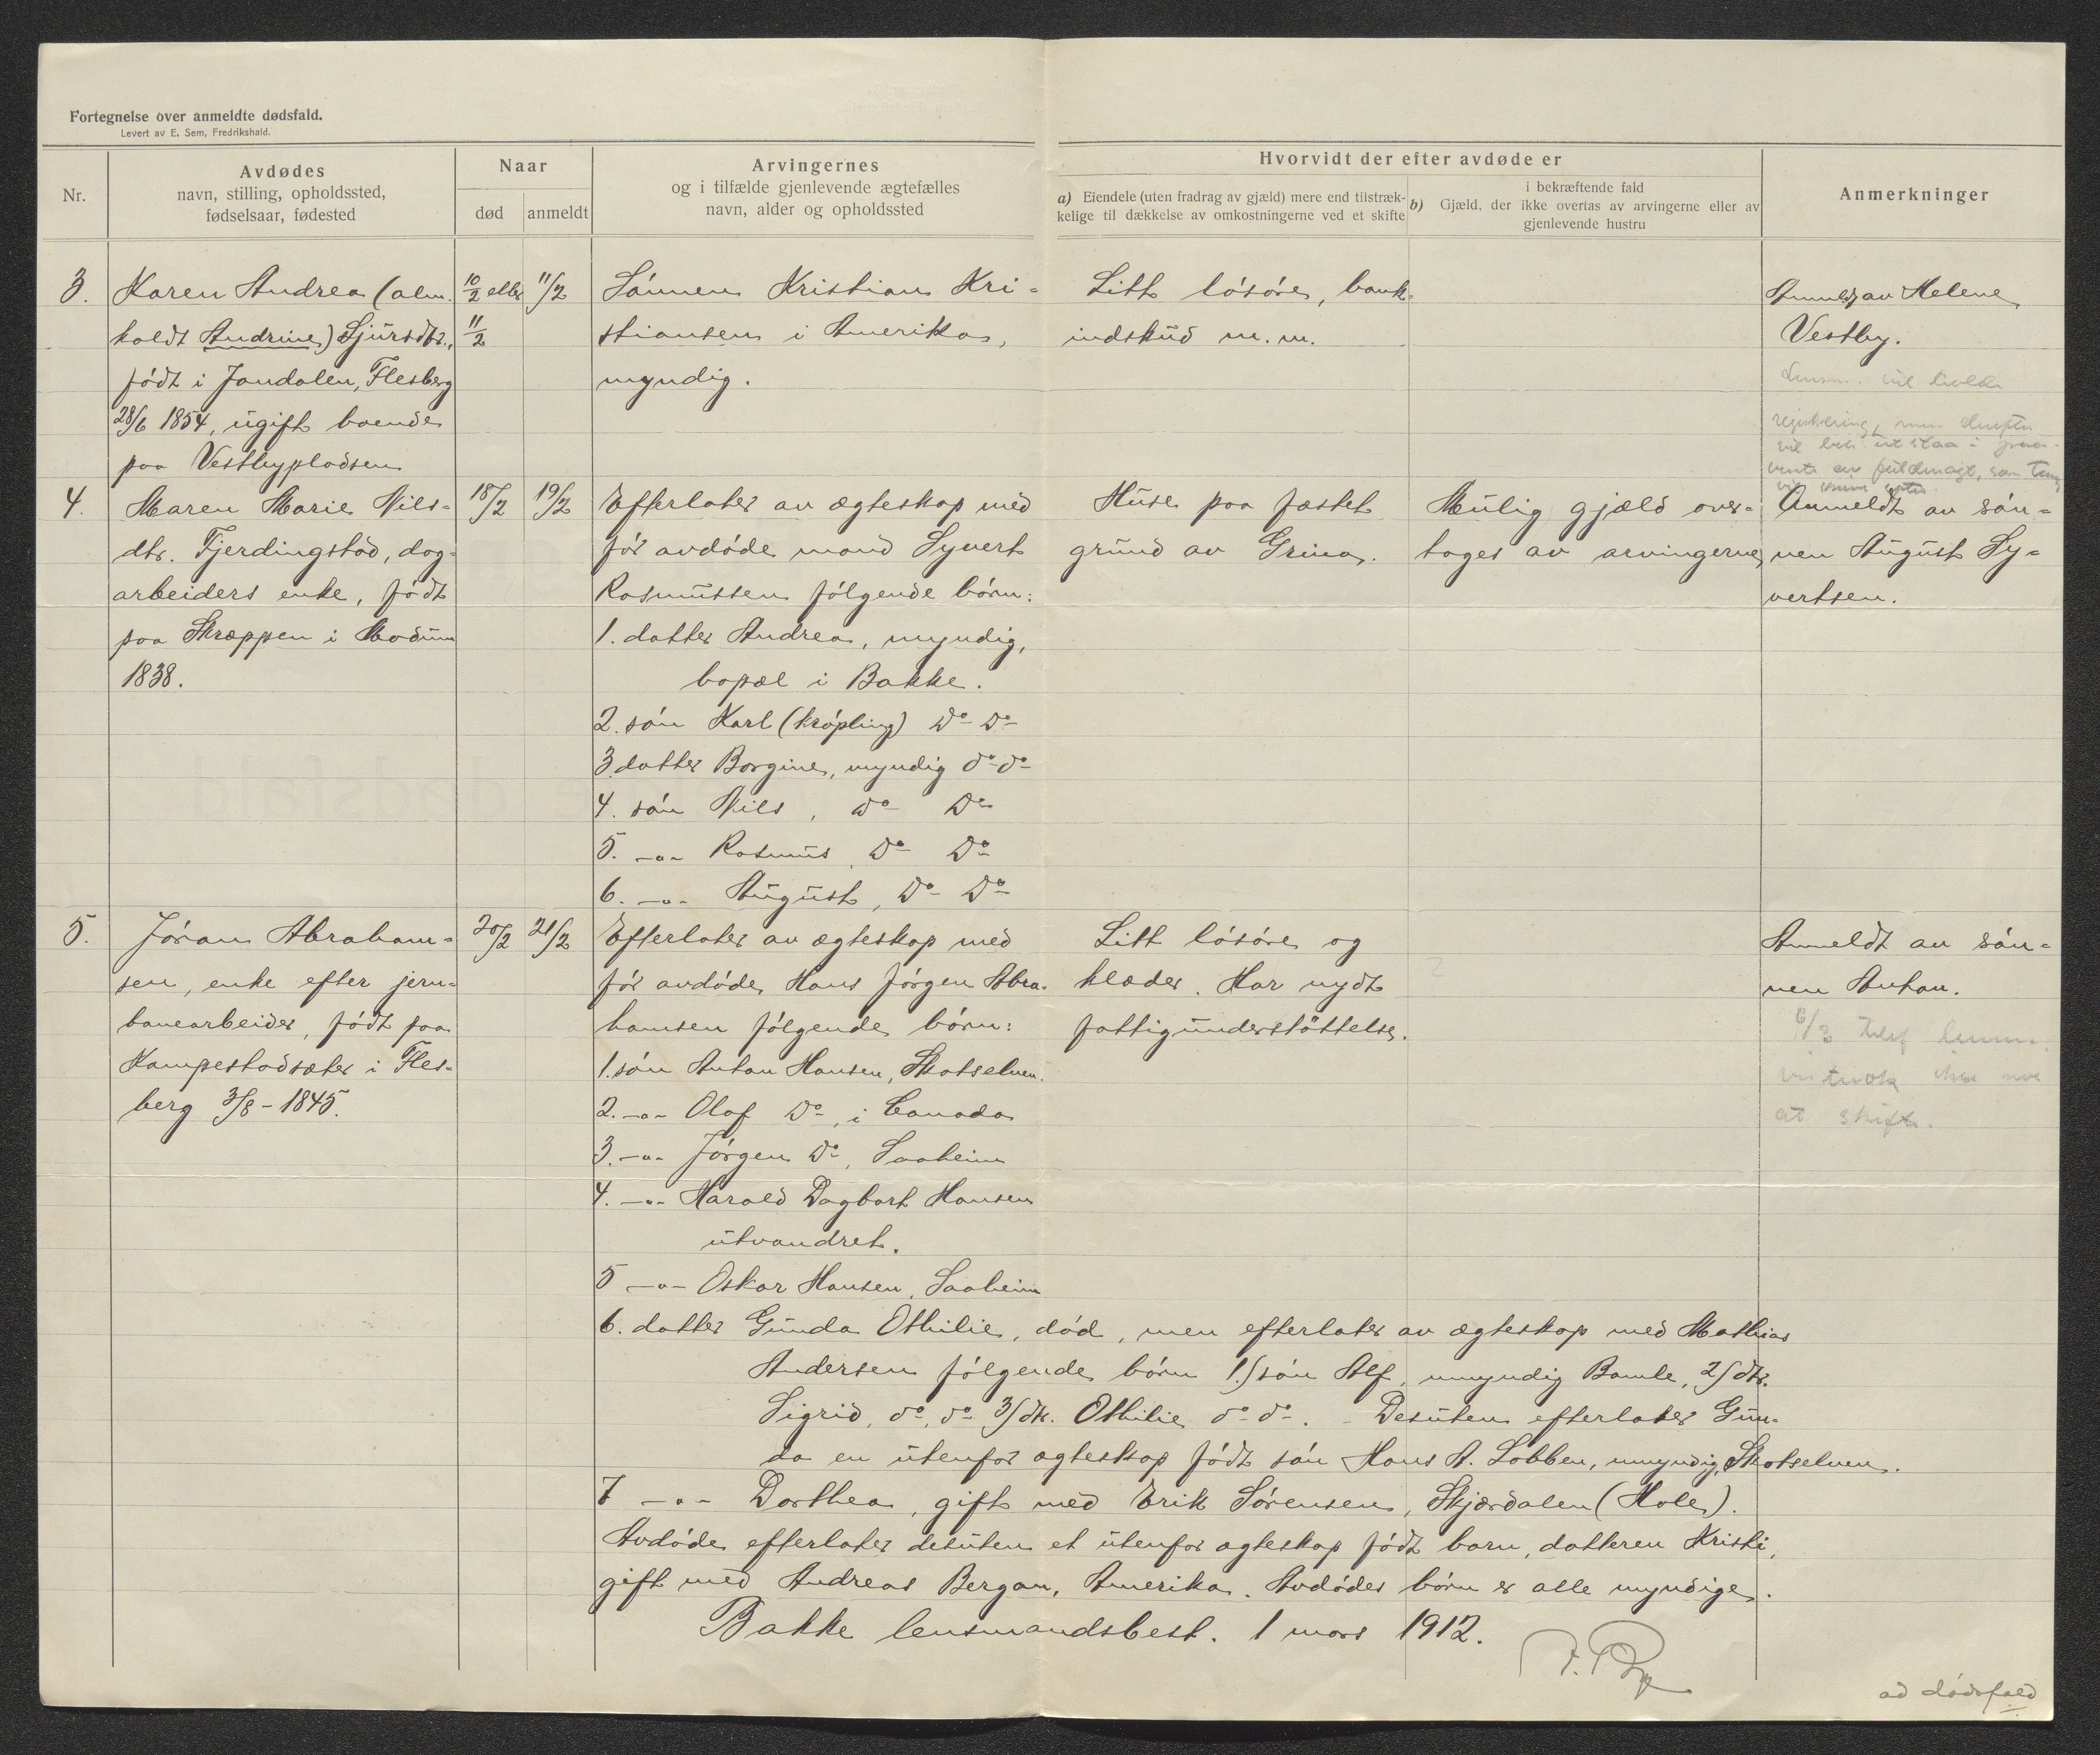 Fortegnelse over anmeldte dødsfald.
Levert av E. Sem, Fredrikshald.
Nr.
Avdødes
navn, stilling, opholdssted,
fødselsaar, fødested
Naar
død
anmeldt
Arvingernes
og i tilfælde gjenlevende ægtefælles
navn, alder og opholdssted
Hvorvidt der efter avdøde er
a) Eiendele (uten fradrag av gjæld) mere end tilstræk-
kelige til dækkelse av omkostningerne ved et skifte
i bekræftende fald
b) Gjæld, der ikke overtas av arvingerne eller av
gjenlevende hustru
Anmerkninger
3.
Karen Andrea (alm.
kaldt Andrine) Sjursdtr.,
født i Jondalen, Flesberg
28/6 1854, ugift boende
paa Vestbypladsen
10/2 eller
11/2
11/2
Sønnen Kristian Kri-
stiansen i Amerika,
myndig.
Litt løsøre, bank-
indskud m.m.
Anmeldt av Helene
Vestby.
Lensm. vil holde
registrering, men
fuldmagt, som
4.
Maren Marie Nils-
dtr. Fjerdingstad, dag-
arbeiders enke, født
paa Skræppen i Modum
1838.
18/2
19/2
Efterlater av ægteskap med
før avdøde mand Syvert
Rasmussen følgende børn:
1. datter Andrea, myndig,
bopæl i Bakke.
2. søn Karl (krøpling) Do Do
3. datter Borgine, myndig do do
4. søn Nils, Do Do
5. -"- Rasmus, Do Do
6. -"- August, Do Do
Huse paa fæstet
grund av Grina.
Mulig gjæld over-
tages av arvingerne
Anmeldt av søn-
nen August Sy-
vertsen.
5.
Jøran Abraham-
sen, enke efter jern-
banearbeider, født paa
Kampestadsæter i Fles-
berg 3/8 - 1845.
20/2
21/2
Efterlater av ægteskap med
før avdøde Hans Jørgen Abra-
hamsen følgende børn:
1. søn Anton Hansen, Skotselven.
2. -"- Olaf Do, i Canada
3. -"- Jørgen Do, Saaheim
4. -"- Harald Dagbart Hansen
utvandret.
5 -"- Oskar Hansen, Saaheim
6. datter Gunda Othilie, død, men efterlater av ægteskap med Mathias
Andersen følgende børn 1.) søn Alf, umyndig Bamle, 2) dtr.
Sigrid, do, do 3) dtr. Othilie do do. - Desuten efterlater Gun-
da en utenfor ægteskap født søn Hans A. Lobben, umyndig, Skotselven.
7 -"- Dorthea, gift med Erik Sørensen, Skjærdalen (Hole).
Avdøde efterlater desuten et utenfor ægteskap født barn, datteren Kristi,
gift med Andreas Bergan, Amerika. Avdødes børn er alle myndige.
Litt løsøre og
klæder. Har nydt
fattigunderstøttelse.
Anmeldt av søn-
nen Anton.
6/3 Telef lensm.
at skifte.
Bakke lensmandsbest. 1 mars 1912.
ad dødsfald